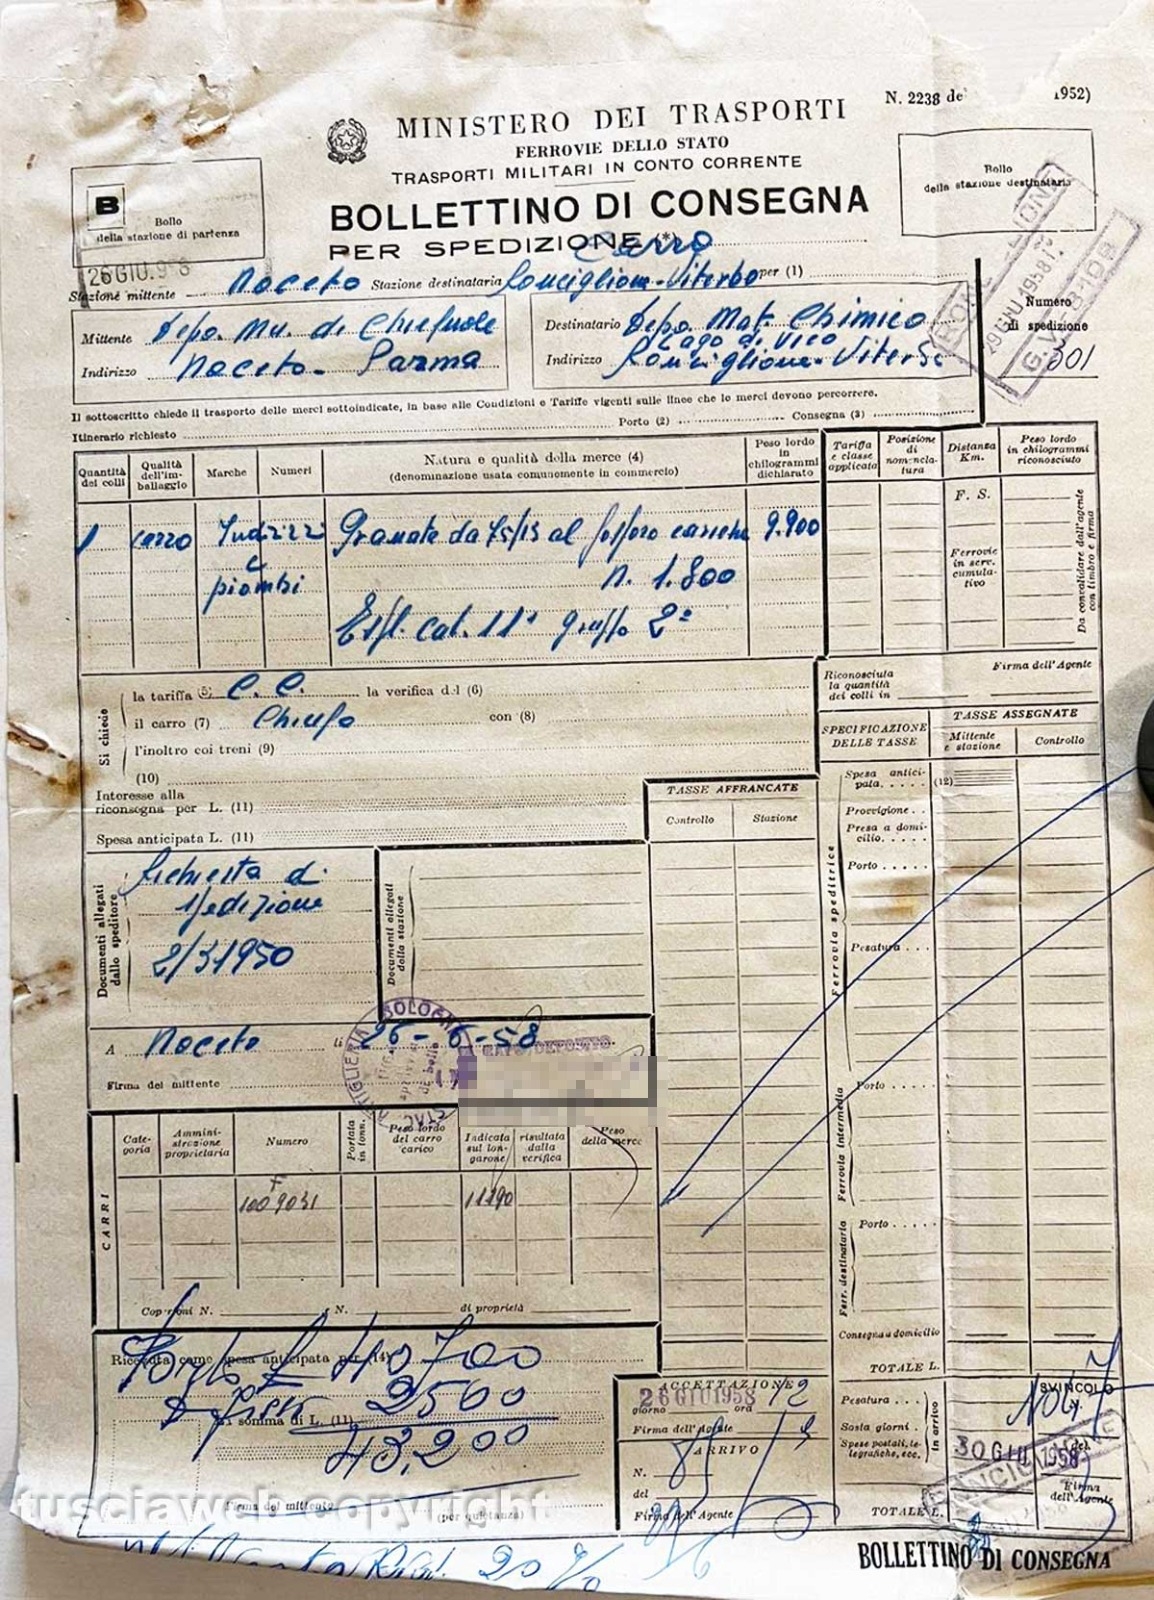 N. 2238 de 1952)
MINISTERO DEI TRASPORTI
FERROVIE DELLO STATO
TRASPORTI MILITARI IN CONTO CORRENTE
BOLLETTINO DI CONSEGNA
PER SPEDIZIONE (*) Carro
B
Bollo
della stazione di partenza
26 GIU. 958
Bollo
della stazione destinataria
Stazione mittente Noceto Stazione destinataria Ronciglione-Viterbo per (1)
29 GIU 1958
Mittente Depo. Mu. di
Indirizzo Noceto - Parma
Destinatario Depo. Mat. Chimico
Lago di Vico
Indirizzo Ronciglione-Viterbo
Numero
di spedizione
301
Il sottoscritto chiede il trasporto delle merci sottoindicate, in base alle Condizioni e Tariffe vigenti sulle linee che le merci devono percorrere.
Itinerario richiesto Porto (2) Consegna (3)
Quantità dei colli
Qualità dell'imballaggio
Marche
Numeri
Natura e qualità della merce (4)
(denominazione usata comunemente in commercio)
Peso lordo in chilogrammi dichiarato
Tariffa e classe applicata
Posizione di nomenclatura
Distanza Km.
Peso lordo in chilogrammi riconosciuto
1 carro Indirizzi Granate da 75/13 al fosforo cariche 9.900
e
piombi n. 1.800
Espl. cat. 11ª gruppo 2º
F. S.
Ferrovie in serv. cumulativo
Da convalidare dall'agente con timbro e firma
Si chiede
la tariffa (5) C. C. la verifica del (6)
il carro (7) Chiuso con (8)
l'inoltro coi treni (9)
(10)
Interesse alla
riconsegna per L. (11)
Spesa anticipata L. (11)
Riconosciuta
la quantità
dei colli in
Firma dell'Agente
SPECIFICAZIONE
DELLE TASSE
TASSE ASSEGNATE
Mittente e stazione
Controllo
TASSE AFFRANCATE
Controllo
Stazione
Ferrovia speditrice
Spesa anticipata (12)
Provvigione
Presa a domicilio
Porto
Pesatura
Documenti allegati dallo speditore
Richiesta di
spedizione
2/3 1950
Documenti allegati dalla stazione
A Noceto li 26-6-58
Firma del mittente
BOLOGNA
CARRI
Categoria
Amministrazione proprietaria
Numero
Portata in tonn.
Peso lordo del carro carico
Indicata sul longarone
risultata dalla verifica
Peso della merce
F
1009031
11190
Copertoni N. N. di proprietà
Ferrovia intermedia
Porto
Ferr. destinataria
Porto
Consegna a domicilio
TOTALE L.
Ricevuta come spesa anticipata per (14)
Porto L 40700
2500
la somma di L. (11)
43,200
Firma del mittente
(per quietanza)
ACCETTAZIONE
26 GIU 1958
giorno ora 12
Firma dell'Agente
ARRIVO
N.
del
Firma dell'Agente
In arrivo
Pesatura
Sosta giorni
Spese postali, telegrafiche, ecc.
TOTALE L.
SVINCOLO
30 GIU. 1958
del
Firma
dell'Agente
RONCIGLIONE
tusciaweb copyright
BOLLETTINO DI CONSEGNA